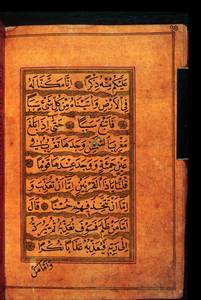 عَلَيْكُمْ مِنْهُ ذِكْرًا اِنَّا مَكَّنَّا لَهُ
فِي الْاَرْضِ وَاٰتَيْنَاهُ مِنْ كُلِّ شَيْءٍ سَبَبًا
فَاَتْبَعَ سَبَبًا حَتّٰى اِذَا بَلَغَ
مَغْرِبَ الشَّمْسِ وَجَدَهَا تَغْرُبُ فِي
عَيْنٍ حَمِئَةٍ وَوَجَدَ عِنْدَهَا قَوْمًا
قُلْنَا يَا ذَا الْقَرْنَيْنِ اِمَّا اَنْ تُعَذِّبَ وَ
اِمَّا اَنْ تَتَّخِذَ فِيهِمْ حُسْنًا قَالَ
اَمَّا مَنْ ظَلَمَ فَسَوْفَ نُعَذِّبُهُ ثُمَّ يُرَدُّ
اِلٰى رَبِّهِ فَيُعَذِّبُهُ عَذَابًا نُكْرًا
وَاَمَّا مَنْ